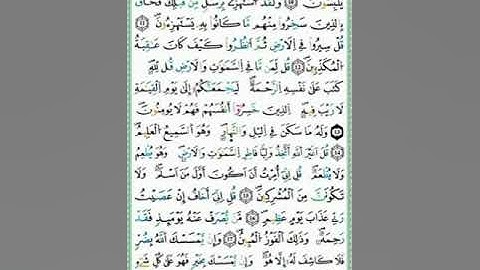 يَلْبِسُونَ وَلَقَدُ اُسْتُهْزِئَ بِرُسُلٍ مِّن قَبْلِكَ فَحَاقَ
بِالذِينَ سَخِرُواْ مِنْهُم مَّا كَانُواْ بِهِۦ يَسْتَهْزِءُونَ
قُلْ سِيرُواْ فِے اِلَارْضِ ثُمَّ اَنظُرُواْ كَيْفَ كَانَ عَٰقِبَةُ
اُلْمُكَذِّبِينَ قُل لِّمَن مَّا فِے اِلسَّمَٰوَٰتِ وَالَارْضِ قُل لِّلهِ
كَتَبَ عَلَىٰ نَفْسِهِ اِلرَّحْمَةَ لَيَجْمَعَنَّكُمُۥٓ إِلَىٰ يَوْمِ اِلْقِيَٰمَةِ
لَا رَيْبَ فِيهِ اِلذِينَ خَسِرُوٓاْ أَنفُسَهُمْ فَهُمْ لَا يُومِنُونَ
وَلَهُۥ مَا سَكَنَ فِے اِليْلِ وَالنَّهَارِ وَهُوَ اَلسَّمِيعُ اُلْعَلِيمُ
قُلَ اَغَيْرَ اَللَّهِ أَتَّخِذُ وَلِيّاً فَاطِرِ اِلسَّمَٰوَٰتِ وَالَارْضِ وَهُوَ يُطْعِمُ
وَلَا يُطْعَمُ قُلِ اِنِّيَ أُمِرْتُ أَنَ اَكُونَ أَوَّلَ مَنَ اَسْلَمَ وَلَا
تَكُونَنَّ مِنَ اَلْمُشْرِكِينَ قُلِ اِنِّيَ أَخَافُ إِنْ عَصَيْتُ
رَبِّے عَذَابَ يَوْمٍ عَظِيمٍ مَّنْ يُّصْرَفْ عَنْهُ يَوْمَئِذٍ فَقَدْ
رَحِمَهُۥ وَذَٰلِكَ اَلْفَوْزُ اُلْمُبِينُ وَإِنْ يَّمْسَسْكَ اَللَّهُ بِضُرٍّ
فَلَا كَاشِفَ لَهُۥٓ إِلَّا هُوَ وَإِنْ يَّمْسَسْكَ بِخَيْرٍ فَهُوَ عَلَىٰ كُلِّ شَےْءٍ